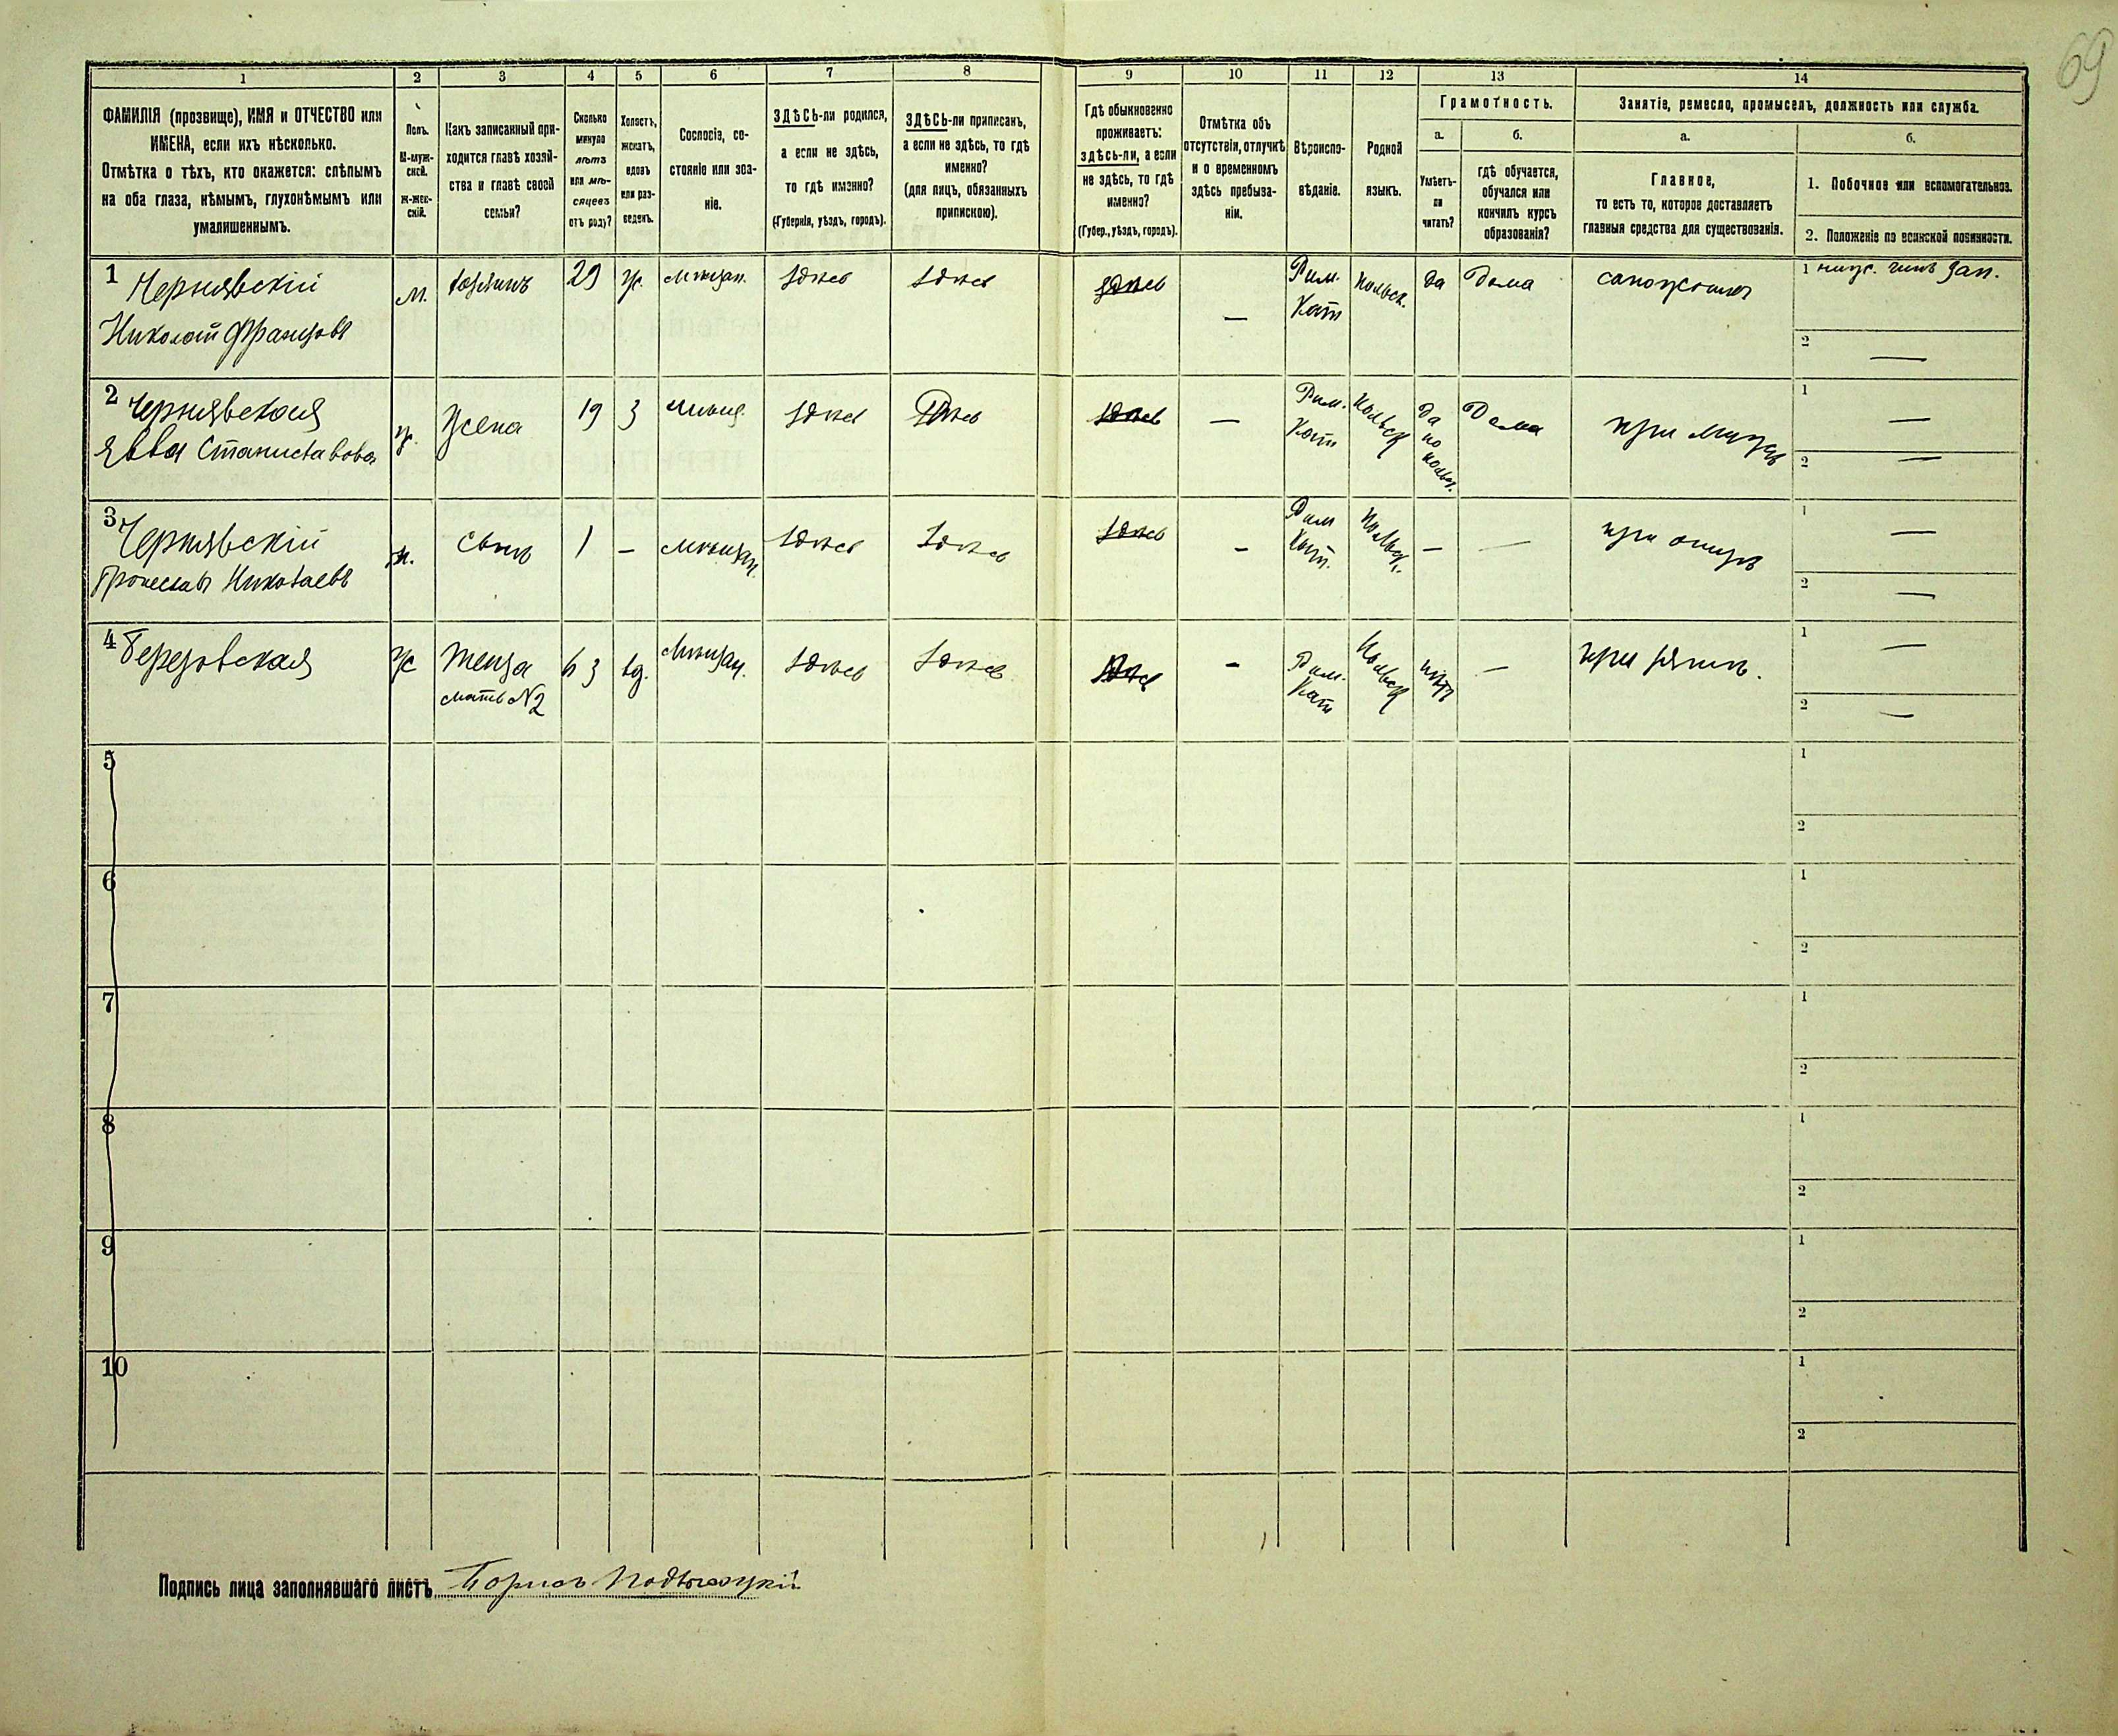 69
1 2 3 4 5 6 7 8 9 10 11 12 13 14
ФАМИЛІЯ (прозвище), ИМЯ и ОТЧЕСТВО или
ИМЕНА, если ихъ нѣсколько.
Отмѣтка о тѣхъ, кто окажется: слѣпымъ
на оба глаза, нѣмымъ, глухонѣмымъ или
умалишеннымъ.
Полъ.
М-муж-
ской.
Ж-жен-
скій.
Какъ записанный при-
ходится главѣ хозяй-
ства и главѣ своей
семьи?
Сколько
минуло
лѣтъ
или мѣ-
сяцевъ
отъ роду?
Холостъ,
женатъ,
вдовъ
или раз-
веденъ.
Сословіе, со-
стояніе или зва-
ніе.
ЗДѢСЬ-ли родился,
а если не здѣсь,
то гдѣ именно?
(Губернія, уѣздъ, городъ).
ЗДѢСЬ-ли приписанъ,
а если не здѣсь, то гдѣ
именно?
(для лицъ, обязанныхъ
припискою).
Гдѣ обыкновенно
проживаетъ:
здѣсь-ли, а если
не здѣсь, то гдѣ
именно?
(Губер., уѣздъ, городъ).
Отмѣтка объ
отсутствіи, отлучкѣ
и о временномъ
здѣсь пребыва-
ніи.
Вѣроиспо-
вѣданіе.
Родной
языкъ.
Грамотность.
а.
Умѣетъ-
ли
читать?
б.
гдѣ обучается,
обучался или
кончилъ курсъ
образованія?
Занятіе, ремесло, промыселъ, должность или служба.
а.
Главное,
то есть то, которое доставляетъ
главныя средства для существованія.
б.
1. Побочное или вспомогательное.
2. Положеніе по воинской повинности.
1 Чернявскій
Николай Францовъ
м. хозяинъ 29 ж. мѣщан. здѣсь здѣсь здѣсь — Рим. Кат польск. да дома сапожникъ
1 нижс. чинъ зап.
2 —
2 Чернявская
Ева Станиславова
ж. жена 19 З мѣщ. здѣсь здѣсь здѣсь — Рим. Кат польск да по польск. дома при мужѣ
1 —
2 —
3 Чернявскій
Брониславъ Николаевъ
м. сынъ 1 — мѣщан. здѣсь здѣсь здѣсь — Рим Кат. польск. — — при отцѣ
1 —
2 —
4 Березовская
ж теща
мать №2
63 вд. мѣщан. здѣсь здѣсь здѣсь - Рим. Кат польск нѣтъ — при зятѣ.
1 —
2 —
5
1
2
6
1
2
7
1
2
8
1
2
9
1
2
10
1
2
Подпись лица заполнявшаго листъ Борисъ Подвысоцкій